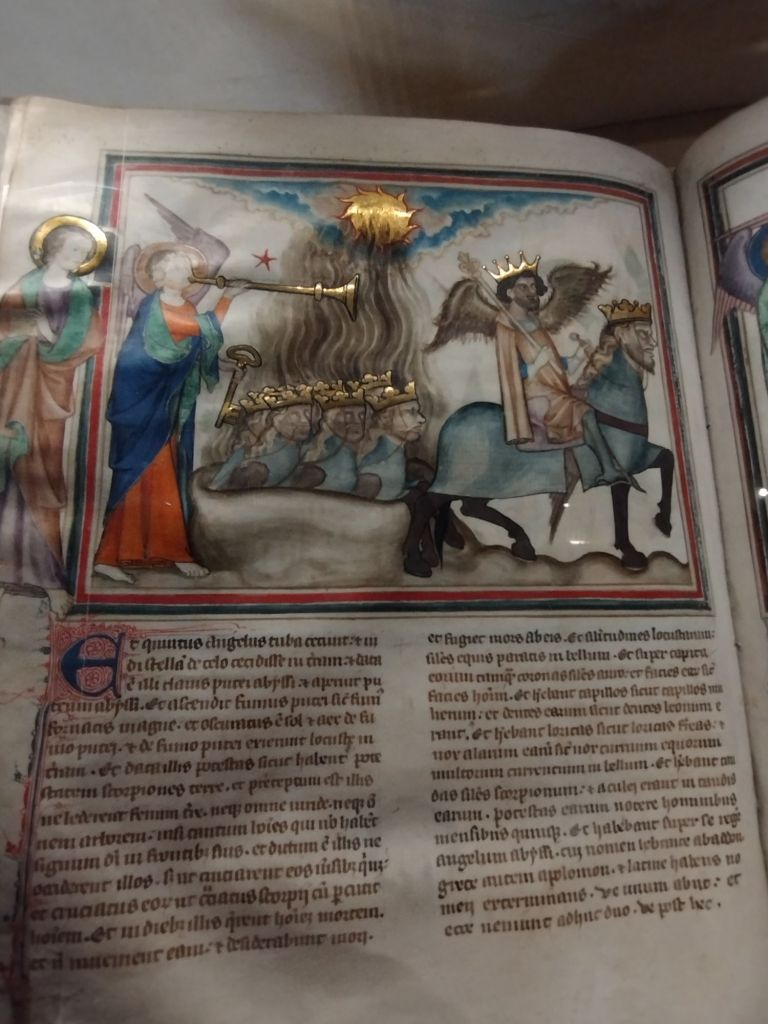 Et quintus angelus tuba cecinit: et in
di stella de celo cecidisse in tram: et data
e illi clauis putei abyssi: et aperuit pu
teum abyssi. Et ascendit fumus putei sic fum
fornacis magne. et obscuratus e sol et aer de fu
mo putei. et de fumo putei exierunt locuste in
tram. Et data illis potestas sicut habent pote
statem scorpiones terre. et preceptum est illis
ne lederent fenum tre. neqз omne uiride. neqз
nem arborem. nisi tantum hoies qui no habet
signum di in frontibз suis. et dictum e illis ne
occiderent illos. s ut cruciarent eos msibз qui
et cruciatus eor ut cruciatus scorpii cu pcutit
hoiem. Et in diebз illis qrent hoies mortem.
et n inuenient eam. et desiderabunt mori.
et fugiet mors ab eis. Et silitudines locustarum:
siles equis paratis in bellum. Et super capita
earum tamqз corone siles auro: et facies ear sic
facies hoim. Et hebant capillos sicut capillos mu
lierum: et dentes earum sicut dentes leonum e
rant. Et hebant loricas sicut loricas freas: et
uox alarum ear sic uox curruum equorum
multorum currentium in bellum. Et hebant cau
das siles scorpionum: et aculei erant in caudis
earum. potestas earum nocere hominibus
mensibus quinqз. Et habebant super se rege
angelum abyssi. cui nomen hebraice abaddon
grece autem apolion. et latine habens no
men exterminans. Ve unum abiit: et
ecce ueniunt adhuc duo. ve post hec.